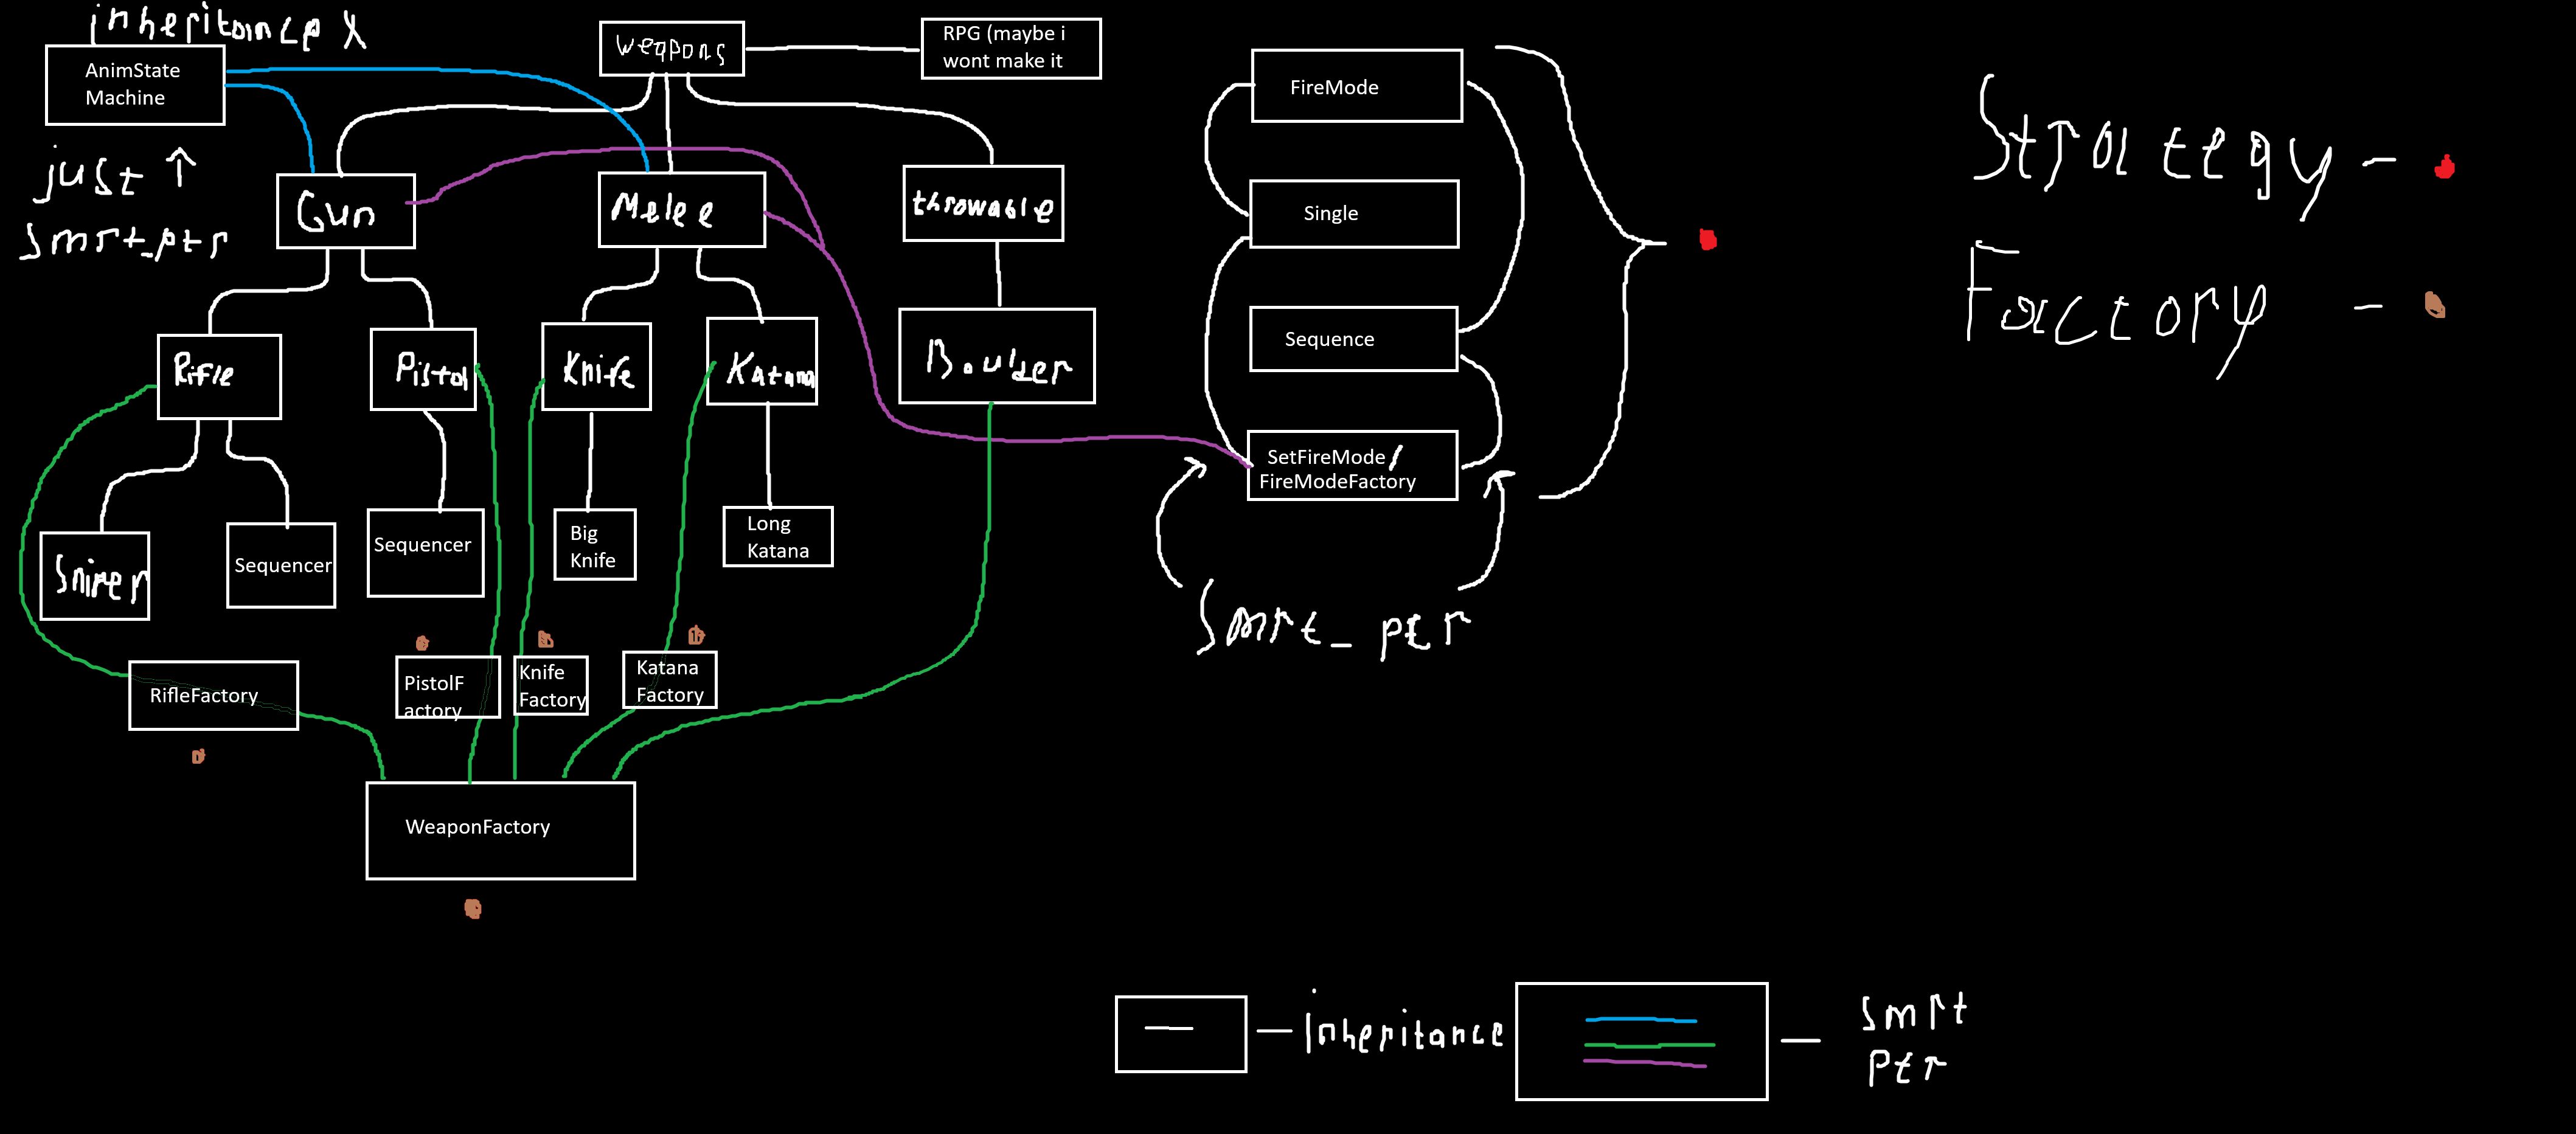 inheritance X
AnimState
Machine
just ↑
smrt_ptr
weapons
RPG (maybe i
wont make it
Gun
Melee
throwable
Rifle
Pistol
Knife
Katana
Boulder
Sniper
Sequencer
Sequencer
Big
Knife
Long
Katana
RifleFactory
PistolF
actory
Knife
Factory
Katana
Factory
WeaponFactory
FireMode
Single
Sequence
SetFireMode/
FireModeFactory
Smrt_ptr
Strategy -
Factory -
— inheritance
— smrt
ptr